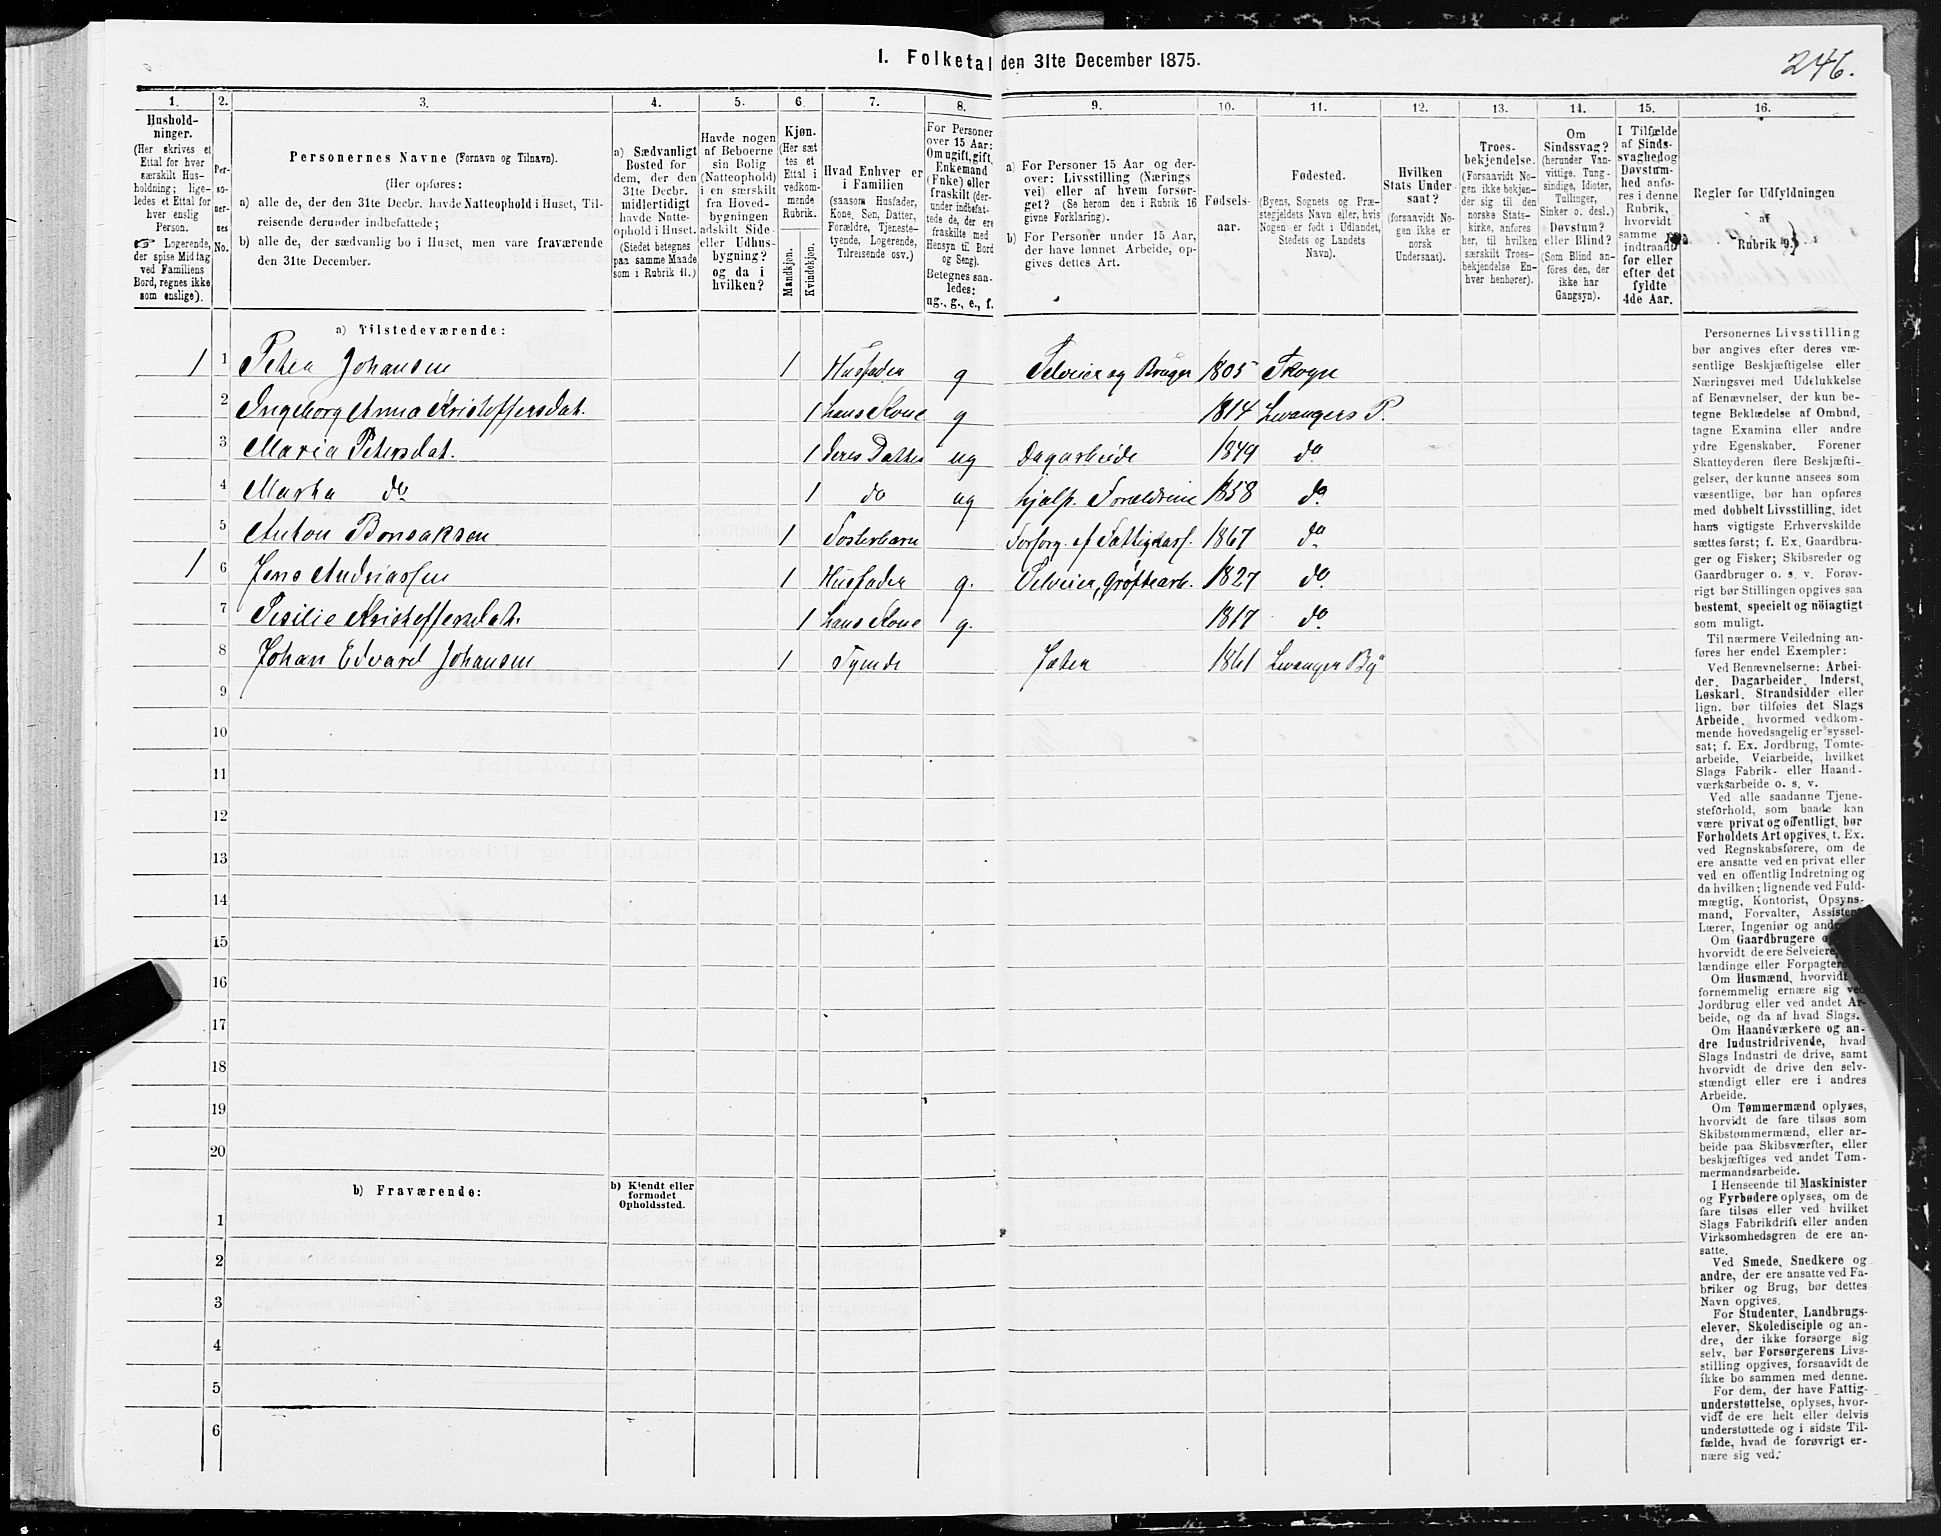 I. Folketal den 31te December 1875.
246.
1. 2. 3. 4. 5. 6 7. 8. 9. 10. 11. 12. 13. 14. 15. 16.
Husholdninger.
(Her skrives et
Ettal for hver
særskilt Husholdning;
ligeledes et Ettal for
hver enslig
Person.
Logerende,
der spise Middag
ved Familiens
Bord, regnes ikke
som enslige).
Personernes No.
Personernes Navne (Fornavn og Tilnavn).
(Her opføres:
a) alle de, der den 31te Decbr. havde Natteophold i Huset, Tilreisende derunder indbefattede;
b) alle de, der sædvanlig bo i Huset, men vare fraværende
den 31te December.
a) Sædvanligt
Bosted for
dem, der den
31te Decbr.
midlertidigt
havde Natteophold i Huset.
(Stedet betegnes
paa samme Maade
som i Rubrik 11.)
Havde nogen
af Beboerne
sin Bolig
(Natteophold)
i en særskilt
fra Hovedbygningen
adskilt Side-
eller Udhusbygning?
og da i
hvilken?
Kjøn.
(Her sættes et
Ettal i
vedkommende
Rubrik.
Mandkjøn.
Kvindekjøn.
Hvad Enhver er
i Familien
(saasom Husfader,
Kone, Søn, Datter,
Forældre, Tjenestetyende, Logerende,
Tilreisende osv.)
For Personer
over 15 Aar:
Om ugift, gift,
Enkemand
(Enke) eller
fraskilt (derunder indbefattede de, der ere
fraskilte med
Hensyn til Bord
og Seng).
Betegnes saaledes:
ug., g., e., f.
a) For Personer 15 Aar og derover: Livsstilling (Næringsvei) eller af hvem forsørget? (Se herom den i Rubrik 16
givne Forklaring).
b) For Personer under 15 Aar,
der have lønnet Arbeide, opgives dettes Art.
Fødselsaar.
Fødested.
(Byens, Sognets og Præstegjeldets Navn eller, hvis
Nogen er født i Udlandet,
Stedets og Landets
Navn).
Hvilken
Stats Undersaat?
(forsaavidt Nogen ikke er
norsk
Undersaat).
Troesbekjendelse.
(Forsaavidt Nogen ikke bekjender sig til den
norske Statskirke, anføres
her, til hvilken
særskilt Troesbekjendelse Enhver henhører).
Om
Sindssvag?
(herunder Vanvittige, Tungsindige, Idioter,
Tullinger,
Sinker o. desl.)
Døvstum?
eller Blind?
(Som Blind anføres den, der
ikke har
Gangsyn).
I Tilfælde
af Sindssvaghed og
Døvstumhed anføres i denne
Rubrik,
hvorvidt
samme er
indtraadt
før eller
efter det
fyldte
4de Aar.
Regler for Udfyldningen
af
Rubrik 9.
a) Tilstedeværende:
1 1 Peter Johansen 1 Husfader g Selveier og Bruger 1805 Skogn
2 Ingeborg Anna Kristoffersdat. 1 hans Kone g 1814 Levangers P.
3 Maria Petersdat. 1 deres Datter ug Dagarbeide 1849 do
4 Martha do 1 do ug hjælp. Forældrene 1858 do
5 Anton Bonsaksen 1 Fosterbarn Forsørg. af Fattigkass. 1867 do
1 6 Jens Andriassen 1 Husfader g. Selveier, Grøftearb. 1827 do
7 Sesilie Kristoffersdat. 1 hans Kone g. 1817 do
8 Johan Edvard Johansen 1 Tyende Jæter 1861 Levanger By
9
10
11
12
13
14
15
16
17
18
19
20
b) Fraværende:
b) Kjendt eller
formodet
Opholdssted.
1
2
3
4
5
6
Personernes Livsstilling
bør angives efter deres væsentlige Beskjæftigelse eller
Næringsvei med Udelukkelse
af Benævnelser, der kun betegne Beklædelse af Ombud,
tagne Examina eller andre
ydre Egenskaber. Forener
Skatteyderen flere Beskjæftigelser, der kunne ansees som
væsentlige, bør han opføres
med dobbelt Livsstilling, idet
hans vigtigste Erhvervskilde
sættes først; f. Ex. Gaardbruger og Fisker; Skibsreder og
Gaardbruger o. s. v. Forøvrigt bør Stillingen opgives saa
bestemt, specielt og nöiagtigt
som muligt.
Til nærmere Veiledning anføres her endel Exempler:
Ved Benævnelserne: Arbeider, Dagarbeider, Inderst,
Løskarl, Strandsidder eller
lign. bør tilføies det Slags
Arbeide, hvormed vedkommende hovedsagelig er sysselsat; f. Ex. Jordbrug, Tomtearbeide, Veiarbeide, hvilket
Slags Fabrik- eller Haandværksarbeide o. s. v.
Ved alle saadanne Tjenesteforhold, som baade kan
være privat og offentligt, bør
Forholdets Art opgives, t. Ex.
ved Regnskabsførere, om de
ere ansatte ved en privat eller
ved en offentlig Indretning og
da hvilken; lignende ved Fuldmægtig, Kontorist, Opsynsmand, Forvalter, Assistent,
Lærer, Ingeniør og andre.
Om Gaardbrugere
hvorvidt de ere Selveiere,
lændinge eller Forpagtere.
Om Husmænd, hvorvidt
fornemmelig ernære sig ved
Jordbrug eller ved andet Arbeide, og da af hvad Slags.
Om Haandværkere og andre Industridrivende, hvad
Slags Industri de drive, samt
hvorvidt de drive den selvstændigt eller ere i andres
Arbeide.
Om Tømmermænd oplyses,
hvorvidt de fare tilsøs som
Skibstømmermænd, eller arbeide paa Skibsværfter, eller
beskjæftiges ved andet Tømmermandsarbeide.
I Henseende til Maskinister
og Fyrbødere oplyses, om de
fare tilsøs eller ved hvilket
Slags Fabrikdrift eller anden
Virksomhedsgren de ere ansatte.
Ved Smede, Snedkere og
andre, der ere ansatte ved Fabriker og Brug, bør dettes
Navn opgives.
For Studenter, Landbrugselever, Skoledisciple og andre, der ikke forsørge sig
selv, bør Forsørgerens Livsstilling opgives, forsaavidt de
ikke bo sammen med denne.
For dem, der have Fattigunderstøttelse, oplyses, hvorvidt de ere helt eller delvis
understøttede og i sidste Tilfælde, hvad de forøvrigt ernære sig ved.